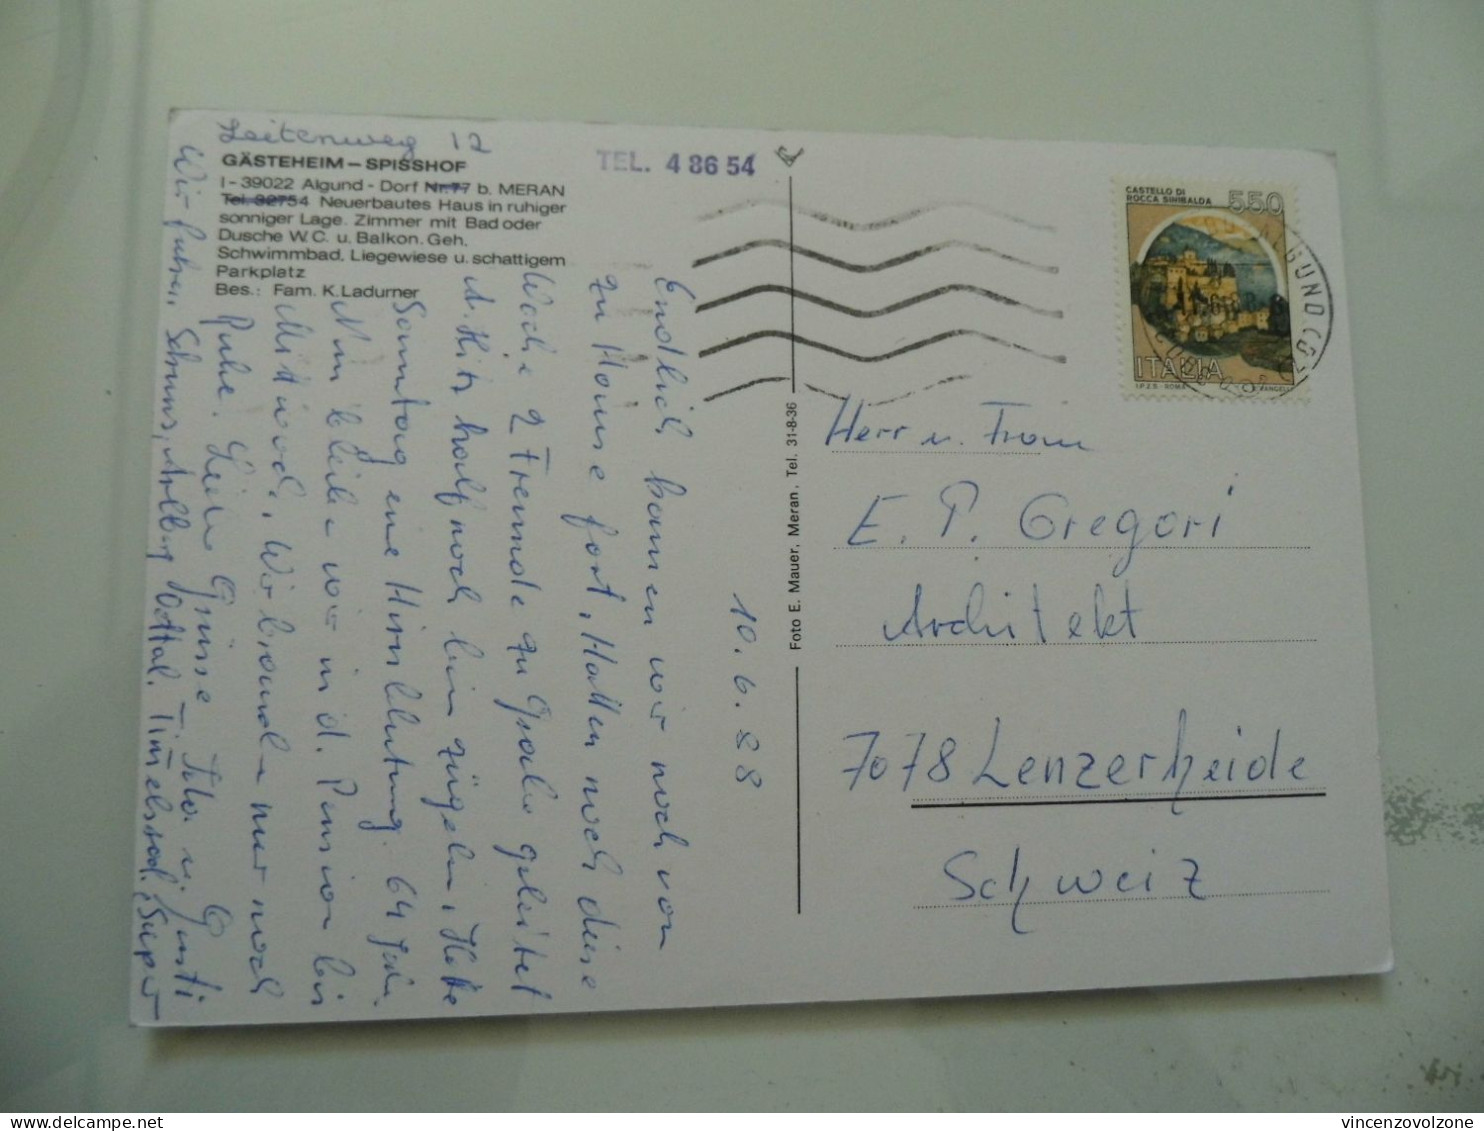 Leitenweg 12
GÄSTEHEIM – SPISSHOF
I - 39022 Algund - Dorf Nr. 77 b. MERAN
Tel. 32754 Neuerbautes Haus in ruhiger
sonniger Lage. Zimmer mit Bad oder
Dusche W.C. u. Balkon. Geh.
Schwimmbad, Liegewiese u. schattigem
Parkplatz
Bes.: Fam. K. Ladurner
TEL. 4 86 54
10. 6. 88
Endlich kamen wir noch von
zu Hause fort, Hatten noch diese
Woche 2 Freunde zu Grabe geleitet
u. Hitz half noch beim zügeln, Hatte
Sonntag eine Hirnblutung. 64 Jahr.
Nun bleiben wir in d. Pension bis
Mittwoch. Wir brauchen nur noch
Ruhe. Liebe Grüsse u. Gusti
Wir fuhren Schruns, Arlberg, Ötztal, Timmelsjoch, Super
Foto E. Mauer, Meran, Tel. 31-8-36
CASTELLO DI
ROCCA SINIBALDA
550
ITALIA
I.P.Z.S. - ROMA
ALGUND
Herr u. Frau
E. P. Gregori
Architekt
7078 Lenzerheide
Schweiz
vincenzovolzone